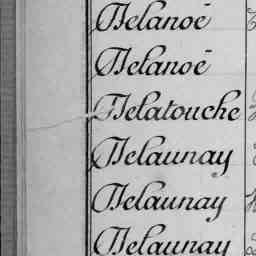 Delanoë
Delanoë
Delatouche
Delaunay
Delaunay
Delaunay